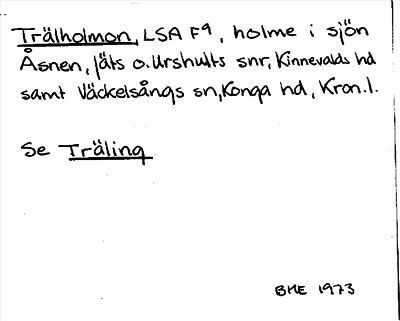 Trälholmon, LSA F9, holme i sjön
Åsnen, Jäts o. Urshults snr, Kinnevalds hd
samt Väckelsångs sn, Konga hd, Kron.l.
Se Träling
BME 1973